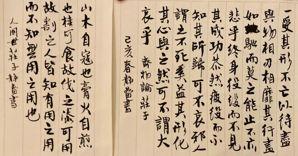 一受其形不亡以待
盡與物相刃相靡其行盡
如馳而莫之能止不亦
悲乎終身役役而不見
其成功苶然疲役而不
知其所歸可不哀邪人
謂之不死奚益其形化
其心與之然可不謂大
哀乎 齊物論莊子
己亥春靜書
山木自寇也膏火自煎
也桂可食故伐之漆可用
故割之人皆知有用之用
而不知無用之用也
人間世莊子 靜書